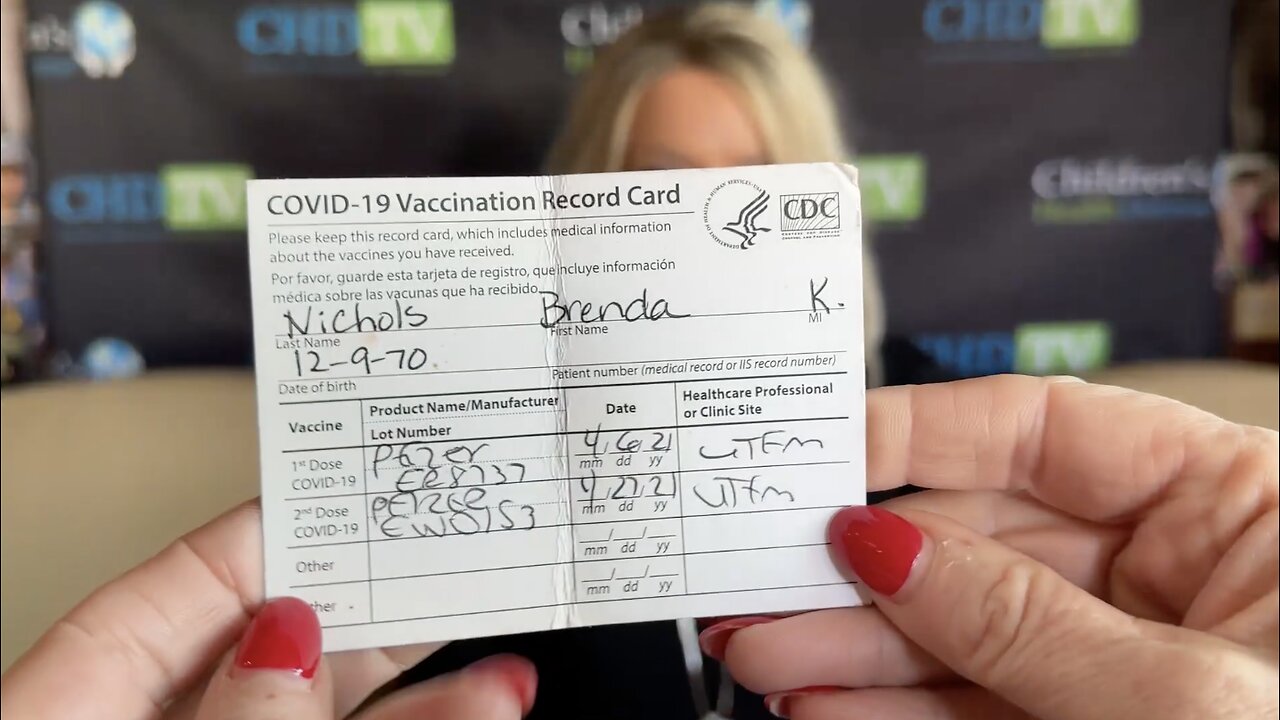 CHDTV
CHDTV
CHDTV
TV
Children's
CHDTV
COVID-19 Vaccination Record Card
CDC
Please keep this record card, which includes medical information
about the vaccines you have received.
Por favor, guarde esta tarjeta de registro, que incluye información
médica sobre las vacunas que ha recibido.
Nichols Brenda K.
Last Name First Name MI
12-9-70
Date of birth Patient number (medical record or IIS record number)
Vaccine Product Name/Manufacturer Date Healthcare Professional
Lot Number or Clinic Site
1st Dose
COVID-19
4 6 21
mm dd yy
2nd Dose
COVID-19
EW0153
4 27 21
mm dd yy
Other
mm dd yy
mm dd yy